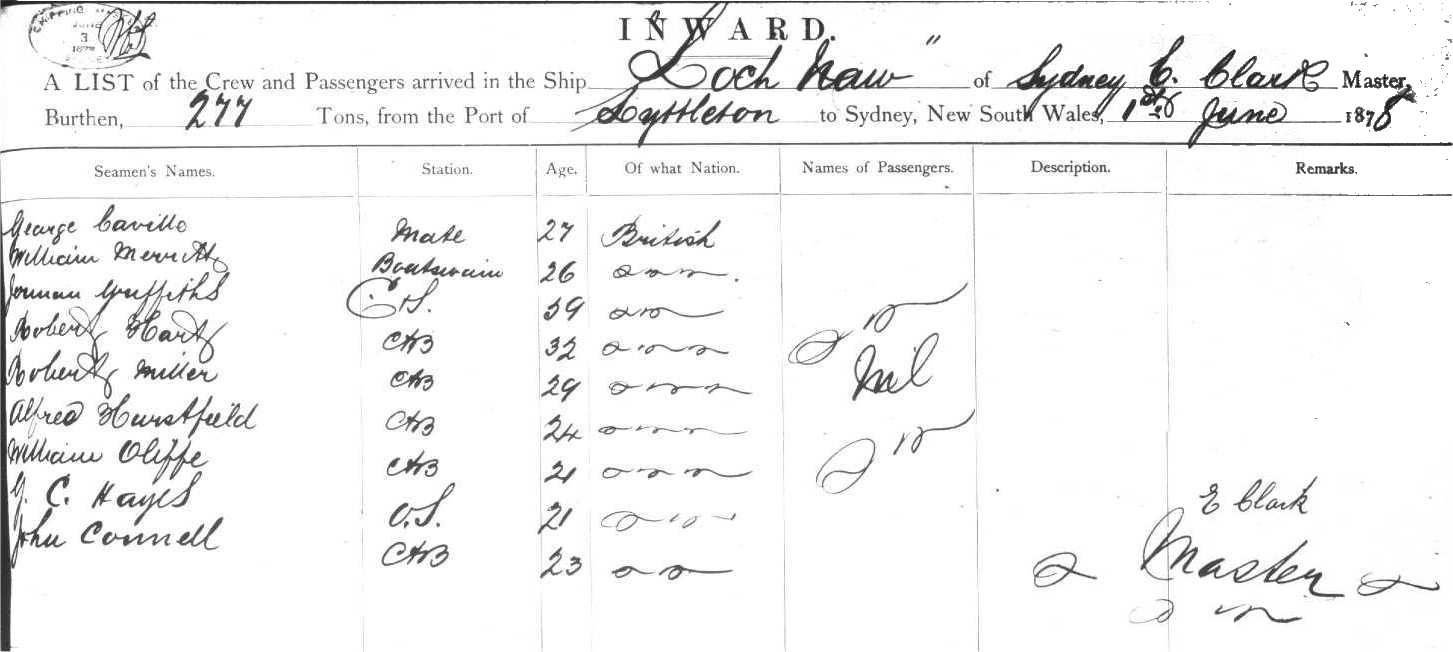 SHIPPING
JUNE
3
1878
INWARD.
A LIST of the Crew and Passengers arrived in the Ship Loch Naw " of Sydney E. Clark Master,
Burthen, 277 Tons, from the Port of Lyttleton to Sydney, New South Wales, 1st June 1878
Seamen's Names. Station. Age. Of what Nation. Names of Passengers. Description. Remarks.
George Caville Mate 27 British
William Merritt Boatswain 26
Griffiths C&S. 39
Robert Hart AB 32
Nil
Robert Miller AB 29
Alfred Hurstfield AB 24
William Oliffe AB 21
G. C. Hayes O.S. 21
E Clark
John Connell AB 23
Master